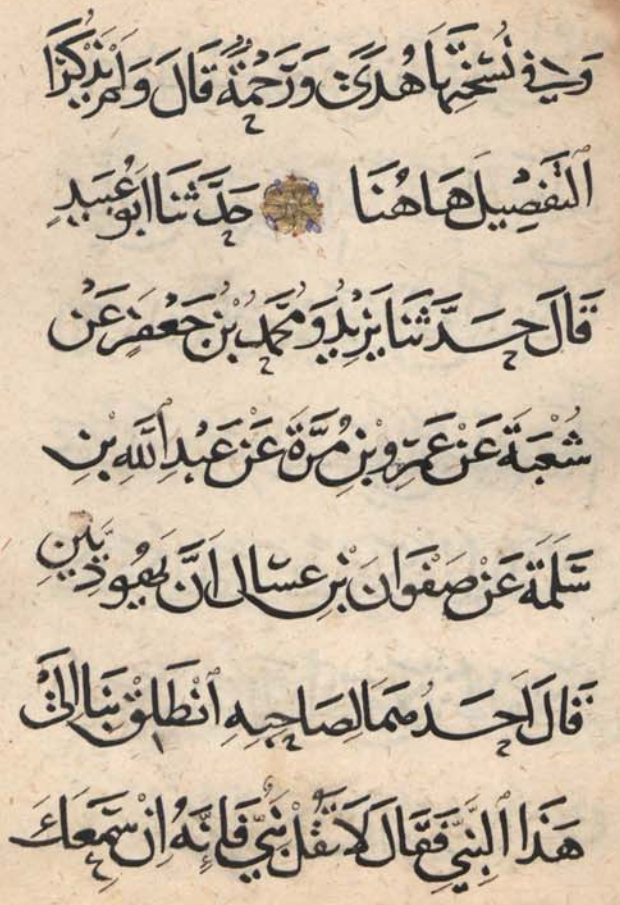 وَفِي نُسْخَتِهَا هُدًى وَرَحْمَةٌ قَالَ وَلَمْ يَذْكُرْ
التَّفْصِيلَ هَاهُنَا حَدَّثَنَا ابُو عُبَيْدٍ
قَالَ حَدَّثَنَا يَزِيْدُ وَمُحَمَّدُ بْنُ جَعْفَرٍ عَنْ
شُعْبَةَ عَنْ عَمْرِو بْنِ مُرَّةَ عَنْ عَبْدِ اللَّهِ بْنِ
سَلَمَةَ عَنْ صَفْوَانَ بْنِ عسال اَنَّ يَهُودِيَّيْنِ
قَالَ اَحَدُهُمَا لِصَاحِبِهِ انْطَلِقْ بِنَا اِلَىْ
هَذَا النَّبِيِّ فَقَالَ لَا تَقُلْ نَبِيٌّ فَإِنَّهُ اِنْ سَمِعَكَ